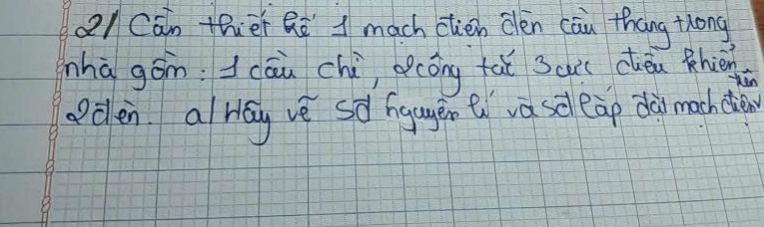 2/ Cần thiết kế 1 mạch điện đèn cầu thang trong
nhà gồm: 1 cầu chì, 2 công tắt 3 cực điều khiển
2 đèn. a/ Hãy vẽ sơ đ nguyên lí và sđ lắp đặt mạch điện
trên